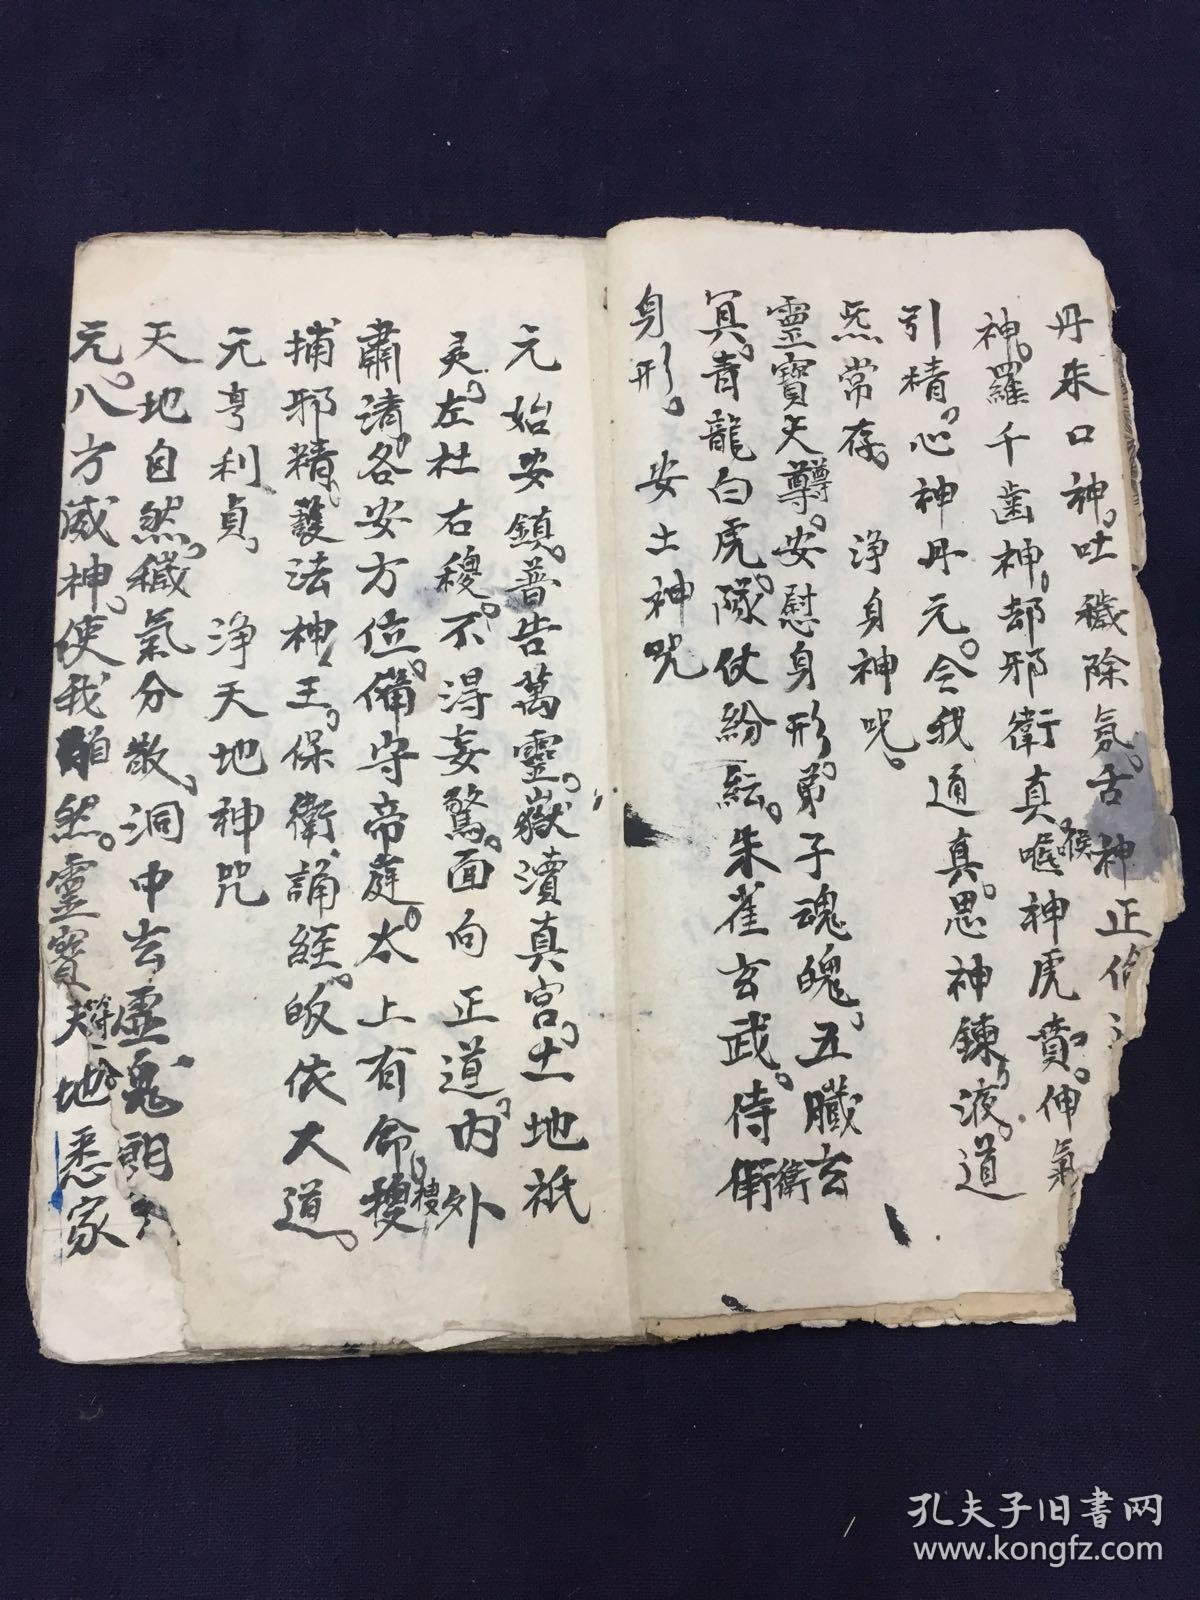 丹朱口神。吐穢除氛。舌神正
神。羅千齒神。却邪衛真喉神虎賁。伸氣
引精。心神丹元。令我通真。思神鍊液。道
炁常存。淨身神咒。
靈寶天尊。安慰身形。弟子魂魄。五臟玄
冥。青龍白虎。隊仗紛紜。朱雀玄武。侍衛
身形。安土神咒
元始安鎮。普告萬靈。嶽瀆真宮。土地祇
灵。左社右稷。不得妄驚。面向正道。内外
肅清。各安方位。備守帝庭。太上有命。搜
捕邪精。護法神王。保衛誦經。皈依大道。
元亨利貞。淨天地神咒
天地自然。穢氣分散。洞中玄虛。晃朗
元。八方威神。使我自然。靈寶符命。天地悉家
孔夫子旧书网
www.kongfz.com